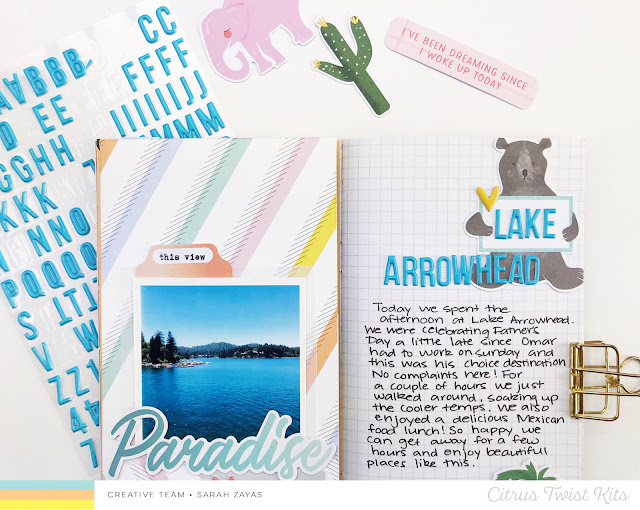 CC
BBB
FFFF
EE
IIIIIJJ
GGHH
MMM
KKK
NNO
PQQQ
I'VE BEEN DREAMING SINCE
I WOKE UP TODAY
this view
Paradise
LAKE
ARROWHEAD
Today we spent the
afternoon at Lake Arrowhead.
We were celebrating Father's
Day a little late since Omar
had to work on Sunday and
this was his choice destination
No complaints here! For
a couple of hours we just
walked around, soaking up
the cooler temps. We also
enjoyed a delicious Mexican
food lunch! So happy we
can get away for a few
hours and enjoy beautiful
places like this.
CREATIVE TEAM • SARAH ZAYAS
Citrus Twist Kits